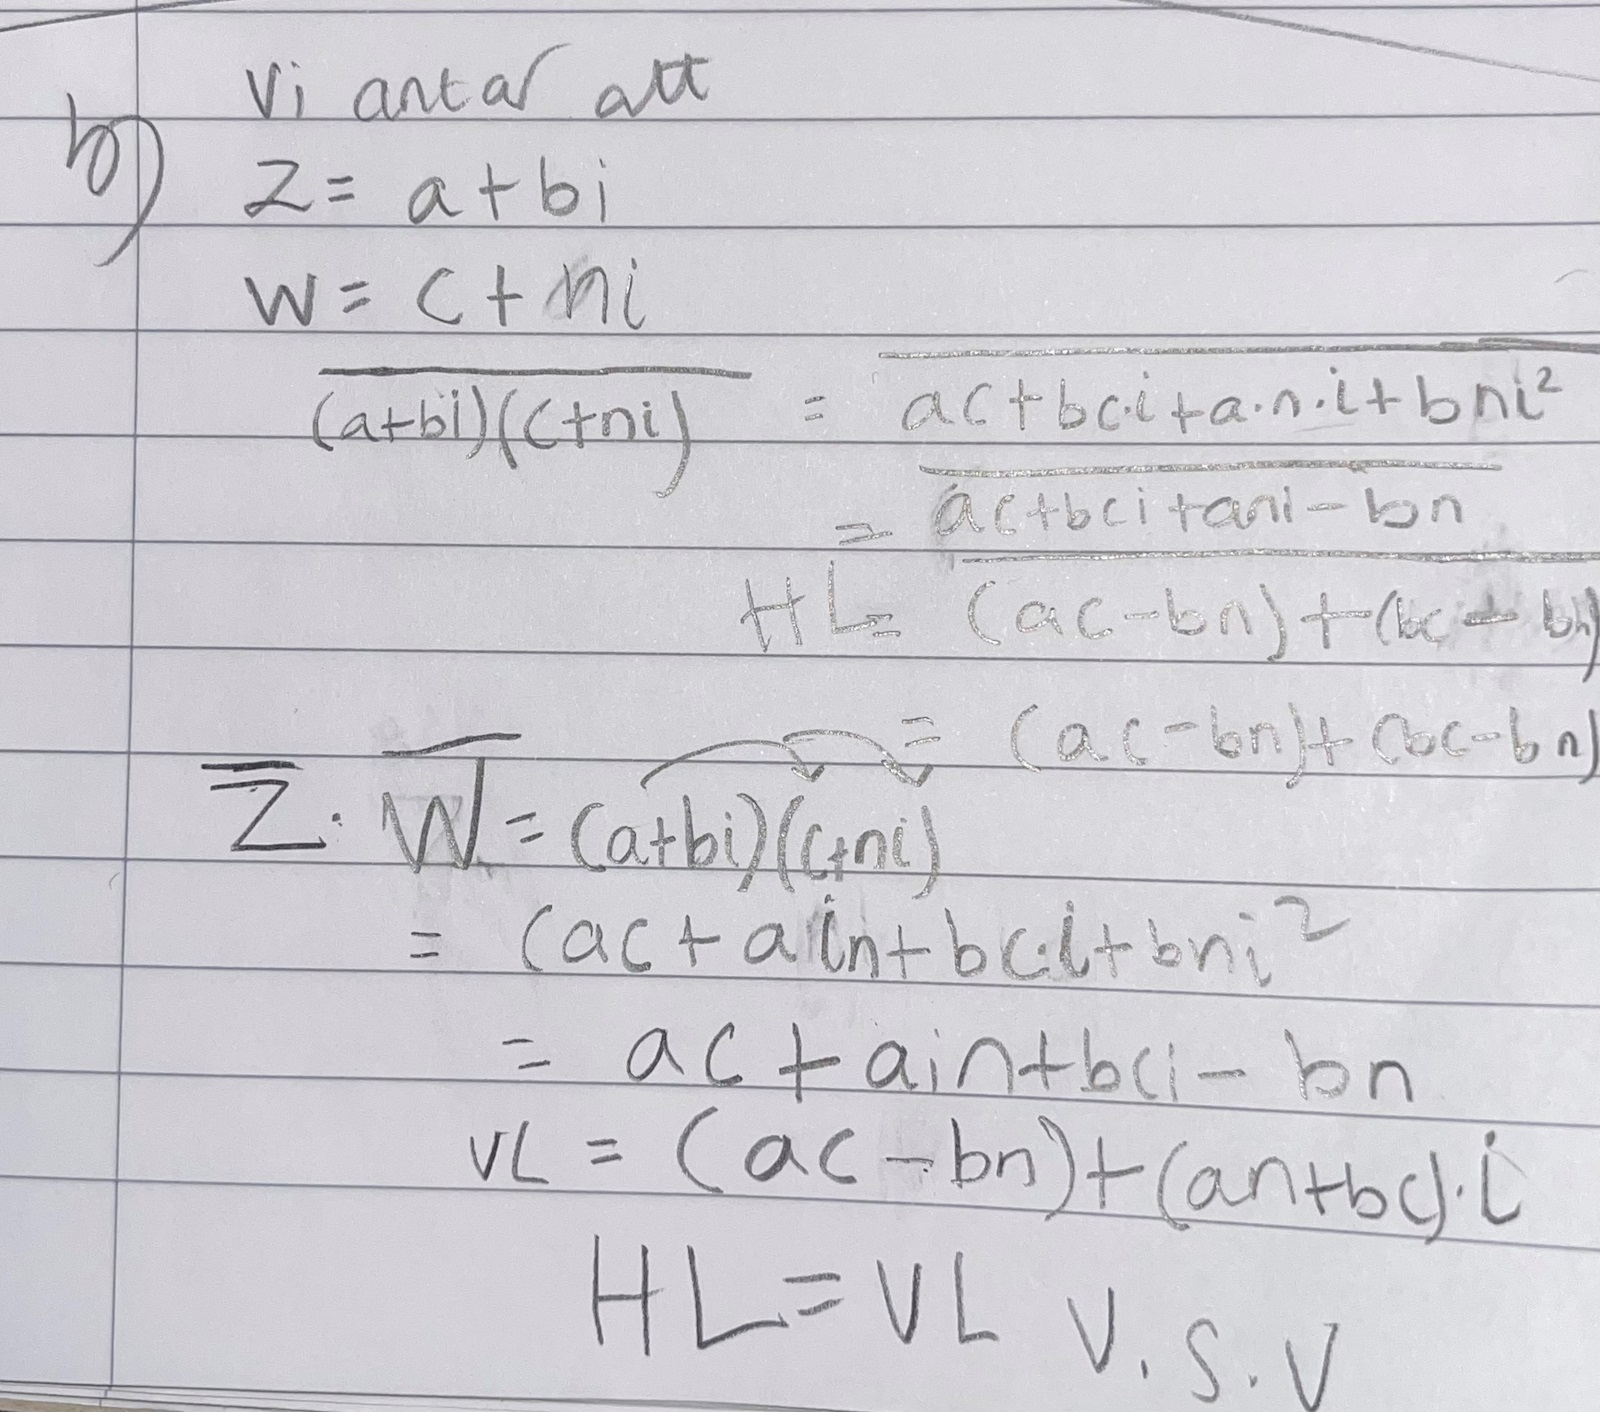 b) Vi antar att
z = a + bi
w = c + ni
\overline{(a+bi)(c+ni)} = \overline{ac+bc·i+a·n·i+bni²}
= \overline{ac+bci+ani-bn}
HL = \overline{(ac-bn)+(bc+bn)}
= (ac-bn)+(bc-bn)
\overline{Z}·\overline{W} = (a+bi)(c+ni)
= (ac+ain+bc·i+bni²
= ac+ain+bci-bn
VL = (ac-bn)+(an+bc)·i
HL = VL V.S.V